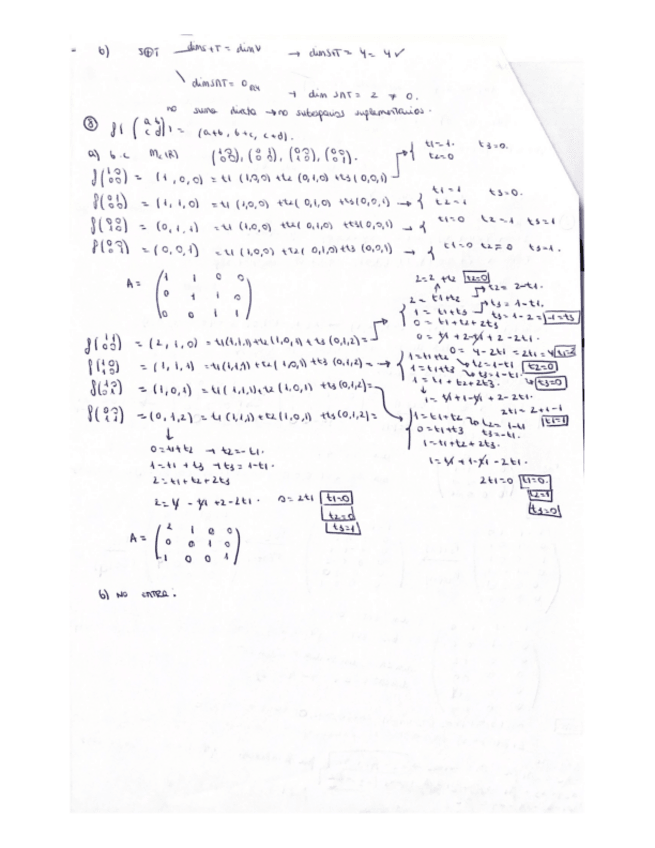 b) S⊕T dim S+T = dim V → dim S+T = 4 = 4 ✓
dim S∩T = 0
→ dim S∩T = 2 ≠ 0.
no suma directa → no subespacios suplementarios.
⑧ f( (a b / c d) ) = (a+b, b+c, c+d).
a) b.c M2(R) (1 0 / 0 0), (0 1 / 0 0), (0 0 / 1 0), (0 0 / 0 1).
f(1 0 / 0 0) = (1,0,0) = t1 (1,0,0) + t2 (0,1,0) + t3 (0,0,1) → { t1=1. t2=0 t3=0.
f(0 1 / 0 0) = (1,1,0) = t1 (1,0,0) + t2 (0,1,0) + t3 (0,0,1) → { t1=1 t2=1 t3=0.
f(0 0 / 1 0) = (0,1,1) = t1 (1,0,0) + t2 (0,1,0) + t3 (0,0,1) → { t1=0 t2=1 t3=1
f(0 0 / 0 1) = (0,0,1) = t1 (1,0,0) + t2 (0,1,0) + t3 (0,0,1) → { t1=0 t2=0 t3=1.
A = (1 1 0 0 / 0 1 1 0 / 0 0 1 1)
2=2+t2 t2=0
2 = t1+t2 → t2 = 2-t1.
1 = t1+t3 → t3 = 1-t1.
0 = t1+t2+2t3 t3 = 1-2 = -1=t3
0 = t1+2-t1+2-2t1.
0 = 4-2t1 = 2t1=4 t1=2
f(1 1 / 0 0) = (2,1,0) = t1(1,1,1)+t2(1,0,1)+t3(0,1,2) =
= (1,1,1) = t1(1,1,1)+t2(1,0,1)+t3(0,1,2) = → { 1=t1+t2 → t2=1-t1 t2=0
1=t1+t3 → t3=1-t1. t3=0
1=t1+t2+2t3.
1 = t1+1-t1+2-2t1.
2t1 = 2+1-1
t1=1
= (1,0,1) = t1(1,1,1)+t2(1,0,1)+t3(0,1,2) =
{ 1=t1+t2 → t2=1-t1
0=t1+t3 t3=-t1.
1=t1+t2+2t3.
1=t1+1-t1-2t1.
2t1=0 t1=0.
t2=1
t3=0
= (0,1,2) = t1(1,1,1)+t2(1,0,1)+t3(0,1,2) =
0=t1+t2 → t2=-t1.
1=t1+t3 → t3=1-t1.
2=t1+t2+2t3
2=t1-t1+2-2t1. 0=2t1 t1=0
t2=0
t3=1
A = (2 1 0 0 / 0 0 1 0 / -1 0 0 1)
b) NO ENTRA.